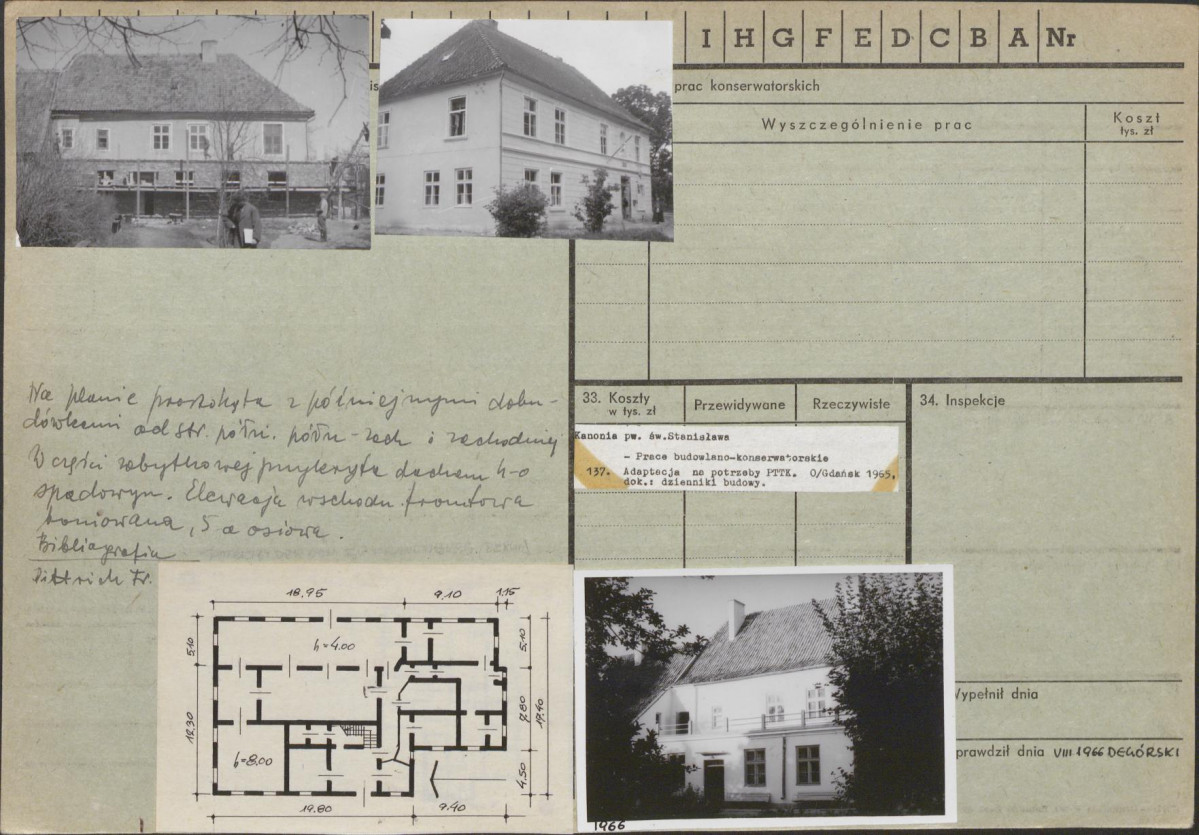 I H G F E D C B A Nr
prac konserwatorskich
Wyszczególnienie prac
Koszt
tys. zł
Na planie prostokąta z późniejszymi dobu-
dówkami od str. półn. półn-zach i zachodniej
W części zabytkowej przykryta dachem 4-o
spadowym. Elewacja wschodn. frontowa
boniowana, 5 o osiowa.
Bibliografia
Dittrich Fr.
33. Koszty
w tys. zł
Przewidywane
Rzeczywiste
34. Inspekcje
Kanonia pw. św.Stanisława
- Prace budowlano-konserwatorskie
137. Adaptacja na potrzeby PTTK. O/Gdańsk 1965,
dok.: dzienniki budowy.
18,95 9,10 1.15
5,10 h=4.00 5,10
12,30 7,80 17,40
h=8.00
4,50
19.80 9.40
1966
Wypełnił dnia
prawdził dnia VIII 1966 DEGÓRSKI